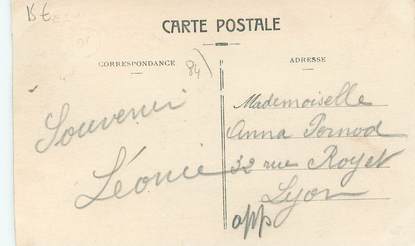 15 €
CARTE POSTALE
CORRESPONDANCE
ADRESSE
84)
Souvenir
Léonie
Mademoiselle
Anna Pernod
32 rue Royet
Lyon
app